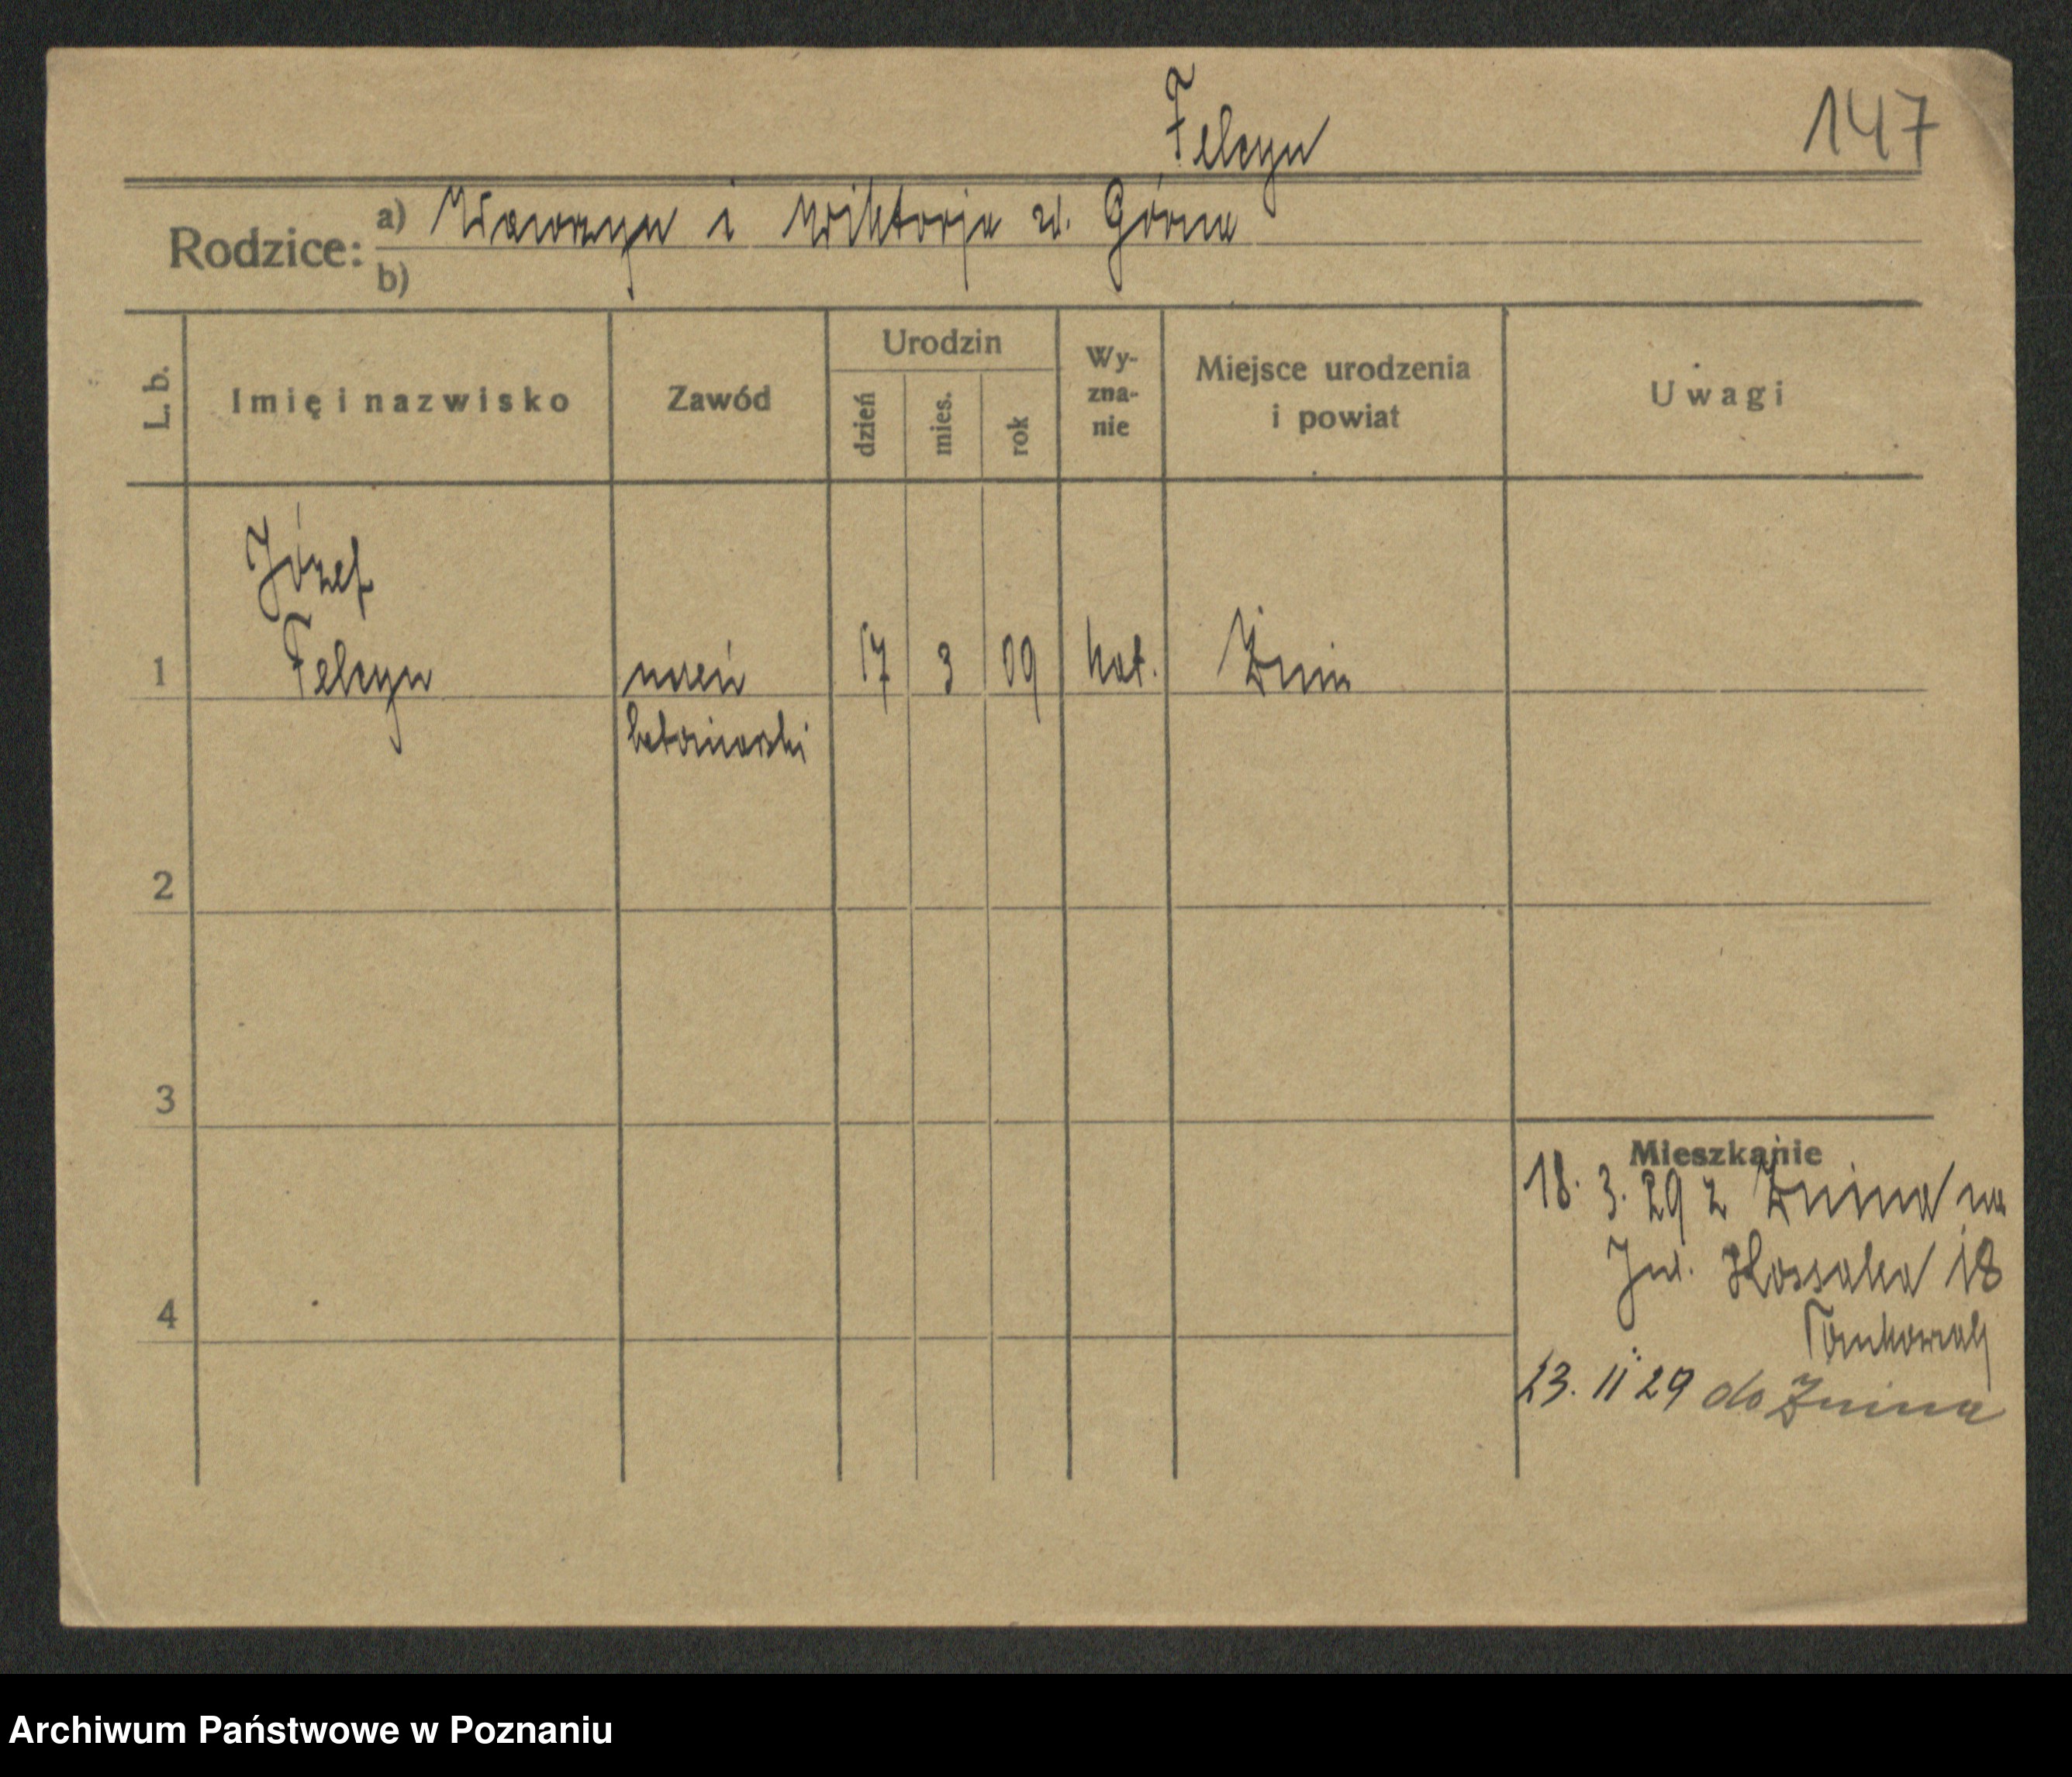 Felcyn
147
Rodzice: a) Wawrzyn i Wiktorja z d. Górna
b)
L. b. Imię i nazwisko Zawód Urodzin dzień mies. rok Wy-zna-nie Miejsce urodzenia i powiat Uwagi
Józef
1 Felcyn uczeń 17 3 09 kat. Żnin
betoniarski
2
3
Mieszkanie
18. 3. 29 z Żnina na
Kossaka 18
4
23. 11 29 do Żnina
Archiwum Państwowe w Poznaniu